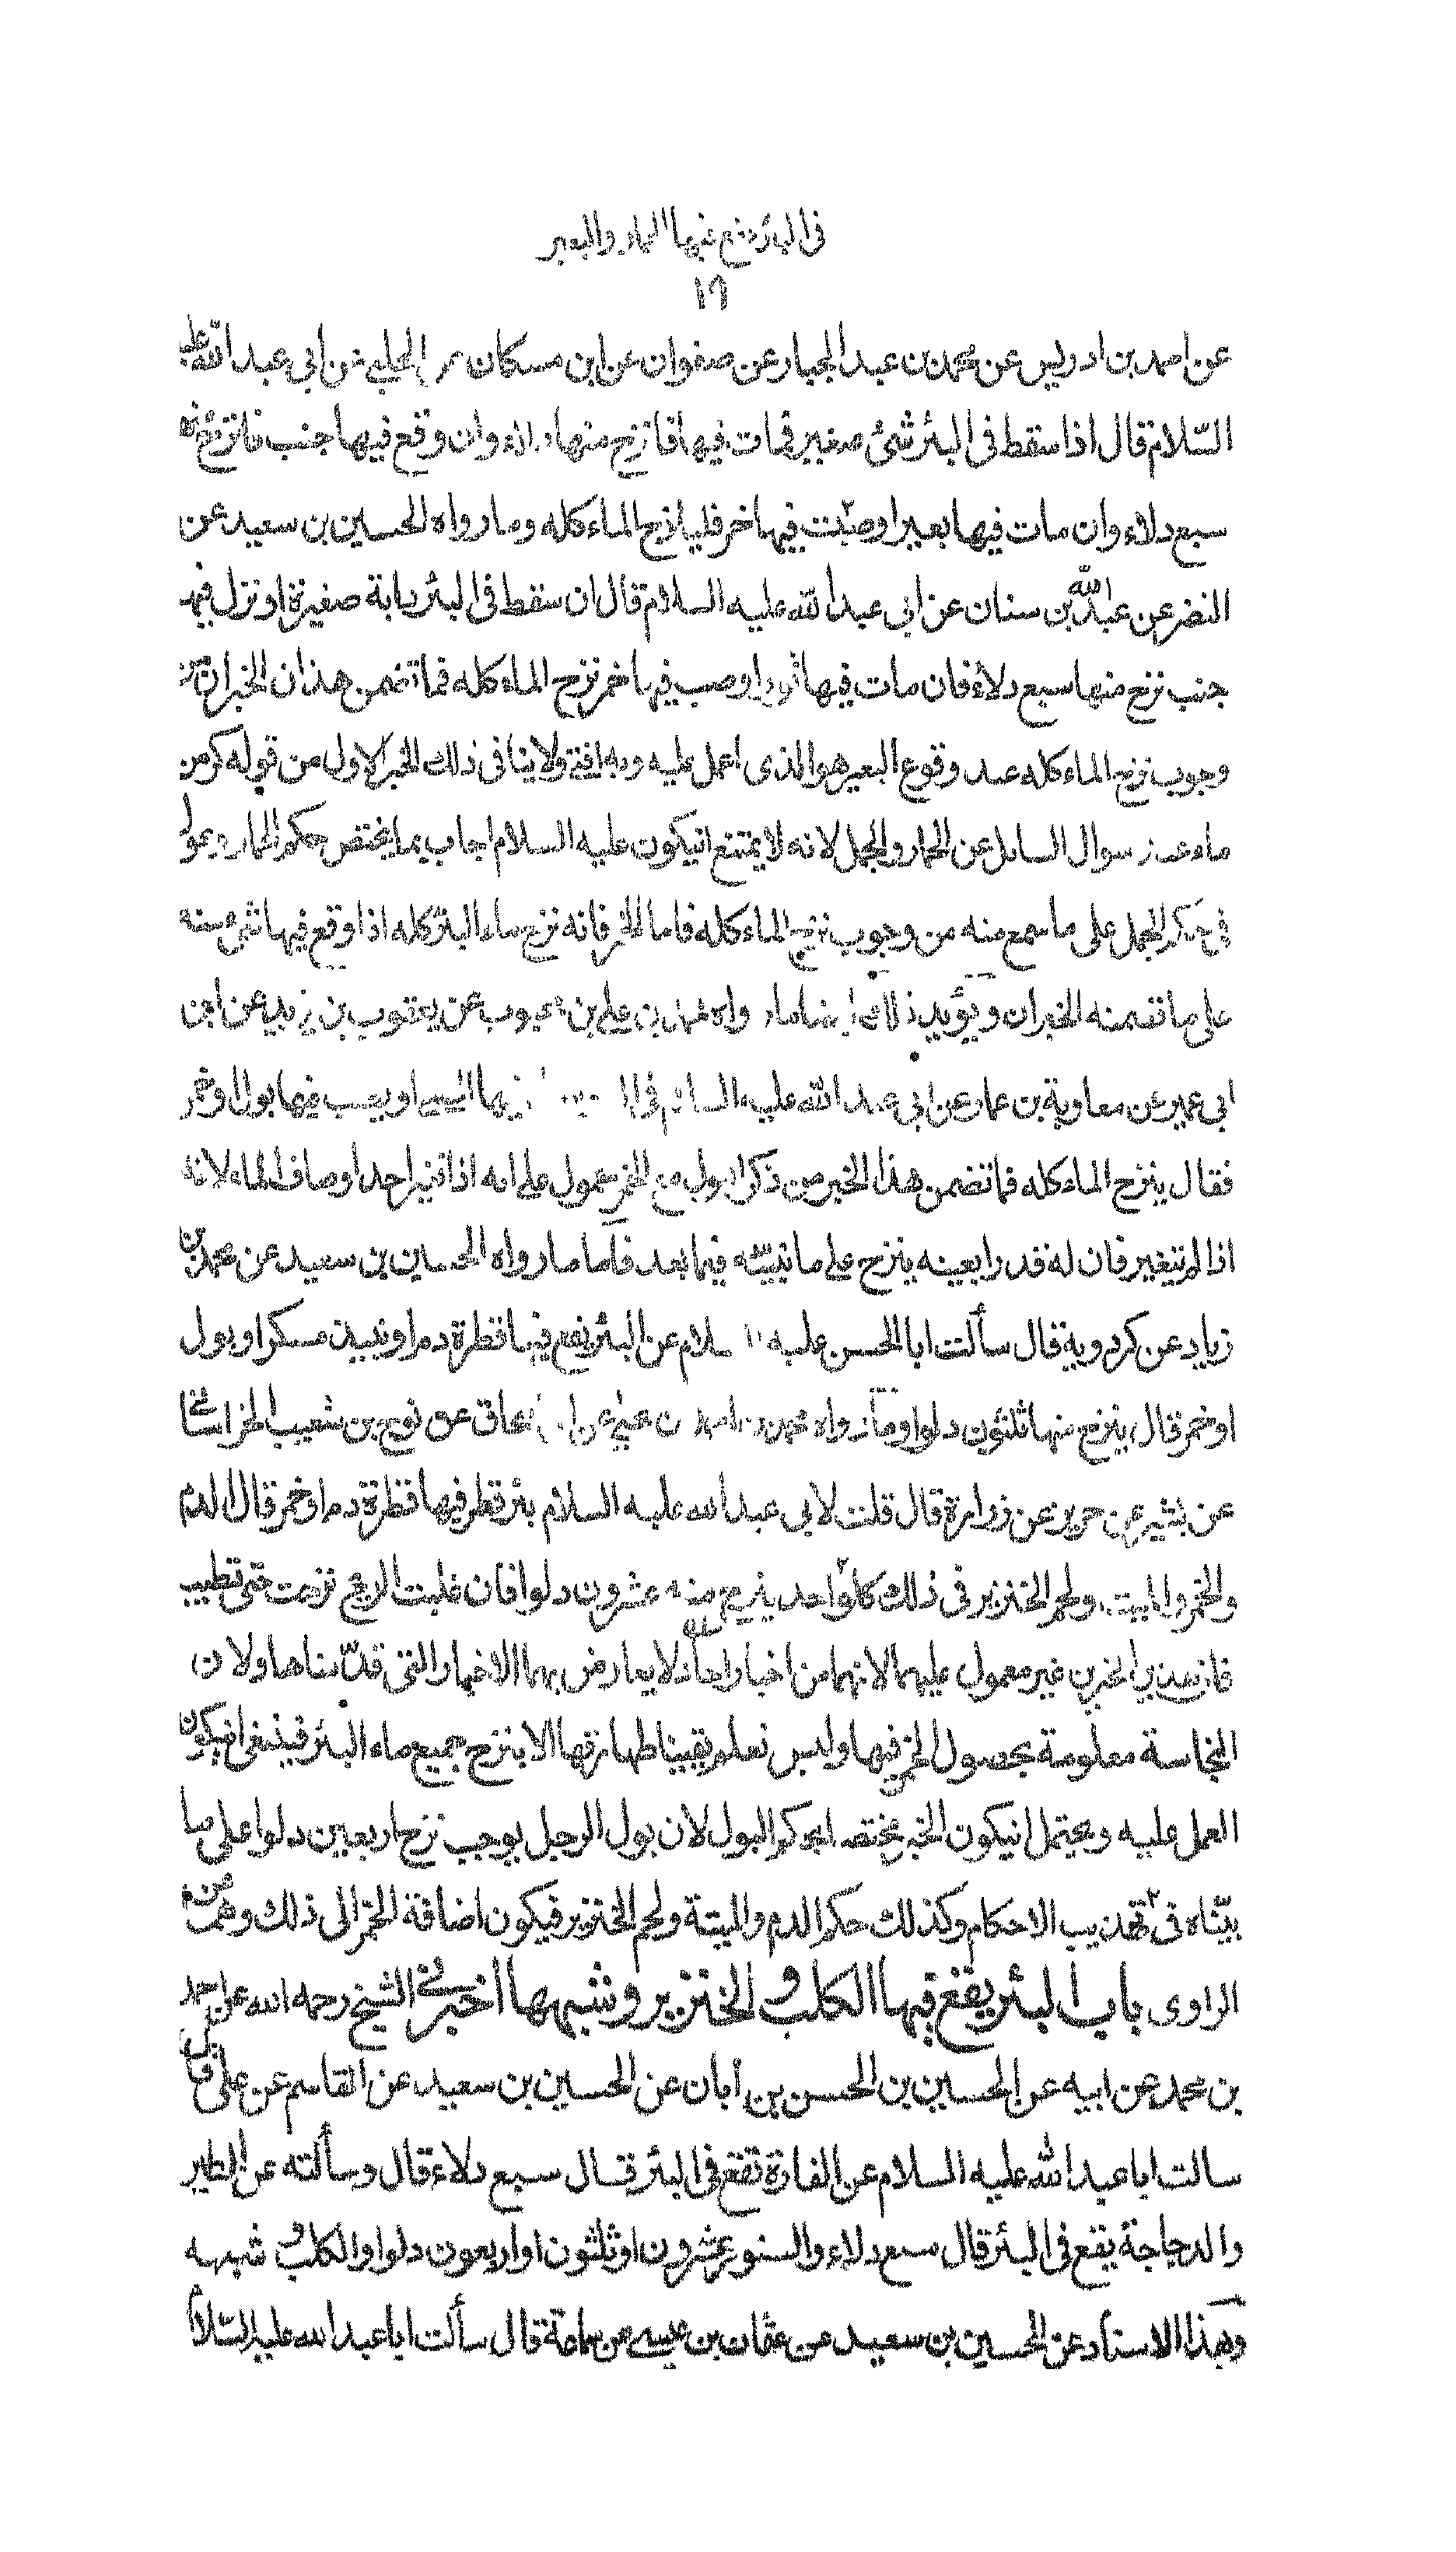 فى البئر يقع فيها الحمار والبعير
١٦
عن احمد بن ادريس عن محمد بن عبد الجبار عن صفوان عن ابن مسكان عن الحلبي عن ابي عبد الله عليه
السّلام قال اذا سقط فى البئر شئ صغير فمات فيها فانزح منها دلاء وان وقع فيها جنب فانزح منها
سبع دلاء وان مات فيها بعير او صبّت فيها خمر فلينزح الماء كله وما رواه الحسين بن سعيد عن
النضر عن عبد الله بن سنان عن ابي عبد الله عليه السلام قال ان سقط فى البئر دابة صغيرة او نزل فيها
جنب نزح منها سبع دلاء فان مات فيها ثور او صب فيها خمر نزح الماء كله فما تضمن هذان الخبران من
وجوب نزح الماء كله عند وقوع البعير هو الذى اعمل عليه وبه افتى ولا ينافى ذلك الخبر الاول من قوله كر من
ماء عند سوال السائل عن الحمار والجمل لانه لا يمتنع ان يكون عليه السلام اجاب بما يختص حكم الحمار وعول
فى حكم الجمل على ما سمع منه من وجوب نزح الماء كله فاما الخمر فانه نزح ماء البئر كله اذا وقع فيها شئ منه
على ما تضمنه الخبران ويؤيد ذلك ايضا ما رواه محمد بن علي بن محبوب عن يعقوب بن يزيد عن ابن
ابى عمير عن معاوية بن عمار عن ابى عبد الله عليه السلام فى البئر فيها الصبى او يصب فيها بول او خمر
فقال ينزح الماء كله فما تضمن هذا الخبر من ذكر البول مع الخمر محمول على انه اذا تغير احد اوصاف الماء لانه
اذا لم يتغير فان له قدرا بعينه ينزح على ما نبينه فيما بعد فاما ما رواه الحسين بن سعيد عن محمد بن
زياد عن كردوية قال سألت ابا الحسن عليه السلام عن البئر يقع فيها قطرة دم او نبيذ مسكر او بول
او خمر قال ينزح منها ثلثون دلوا وما رواه محمد بن احمد بن يحيى عن ابى اسحاق عن نوح بن شعيب الخراسانى
عن بشير عن حريز عن زرارة قال قلت لابى عبد الله عليه السلام بئر قطر فيها قطرة دم او خمر قال الدم
والخمر والميت ولحم الخنزير فى ذلك كله واحد ينزح منه عشرون دلوا فان غلبت الريح نزحت حتى تطيب
فان هذين الخبرين غير معمول عليهما لانهما من اخبار احاد لا يعارض بهما الاخبار التى قدّمناها ولان
النجاسة معلومة بحصول الخمر فيها وليس نعلم يقينا طهارتها الا بنزح جميع ماء البئر فينبغى ان يكون
العمل عليه ويحتمل ان يكون الخبر مختصا بحكم البول لان بول الرجل يوجب نزح اربعين دلوا على ما
بيّناه فى تهذيب الاحكام وكذلك حكم الدم والميتة ولحم الخنزير فيكون اضافة الخمر الى ذلك وهما من
الراوى باب البئر يقع فيها الكلب والخنزير وشبهها اخبرنى الشيخ رحمه الله عن احمد
بن محمد عن ابيه عن الحسين بن الحسن بن أبان عن الحسين بن سعيد عن القاسم عن على قال
سالت ابا عبد الله عليه السلام عن الفارة تقع فى البئر قال سبع دلاء قال وسألته عن الطير
والدجاجة يقع فى البئر قال سبع دلاء والسنور عشرون او ثلثون او اربعون دلوا والكلب و شبهه
وبهذا الاسناد عن الحسين بن سعيد عن عثمان بن عيسى عن سماعة قال سألت ابا عبد الله عليه السّلام